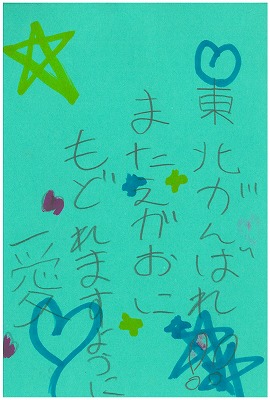 東北がんばれ!!
またえがおに
もどれますように
一愛